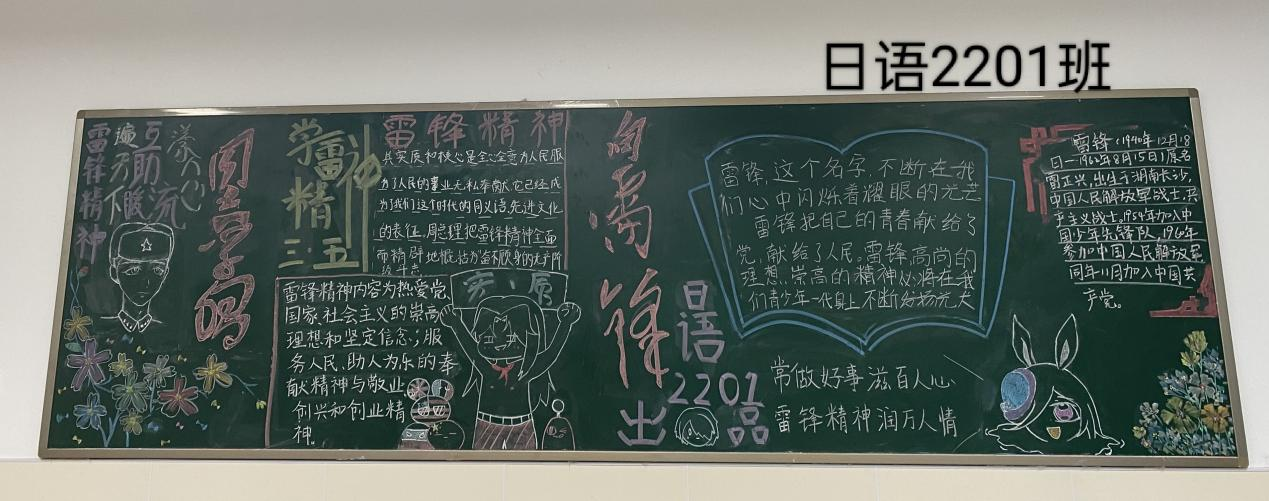 日语2201班
雷锋精神
遍万下
互助暖流
学雷
精神
三·五
雷锋精神
其实质和核心是全心全意为人民服
为了人民的事业无私奉献,它已经成
为我们这个时代的同义语,先进文化
的表征,周总理把雷锋精神全面
而精辟地概括为
雷锋精神内容为热爱党、
国家、社会主义的崇高
理想和坚定信念;服
务人民、助人为乐的奉
献精神与敬业
创兴和创业精
神。
向雷锋
日语
2201
出品
雷锋,这个名字,不断在我
们心中闪烁着耀眼的光芒
雷锋把自己的青春献给了
党,献给了人民。雷锋高尚的
理想,崇高的精神必将在我
们青少年一代身上不断发扬光大
常做好事滋百人心
雷锋精神润万人情
雷锋(1940年12月18
日-1962年8月15日)原名
雷正兴,出生于湖南长沙,
中国人民解放军战士,共
产主义战士,1954年加入中
国少年先锋队,1960年
参加中国人民解放军
同年11月加入中国共
产党。